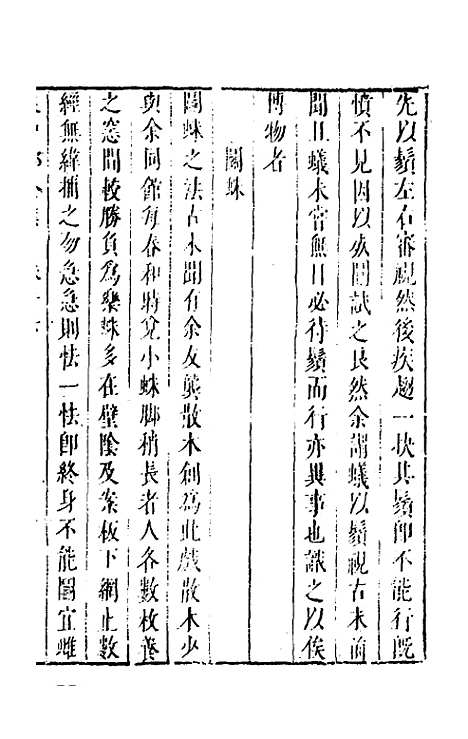 先以鬚左右審視然後疾趨一抉其鬚卽不能行旣
憤不見因以求鬪試之良然余謂蟻以鬚視古未前
聞且蟻未嘗無目必待鬚而行亦異事也識之以俟
博物者
鬪蛛
鬪蛛之法古未聞有余友龔散木創爲此戲散木少
與余同館每春和時覓小蛛脚稍長者人各數枚養
之窓間較勝負爲樂蛛多在壁陰及案板下網止數
經無緯捕之勿急急則怯一怯卽終身不能鬪宜雌